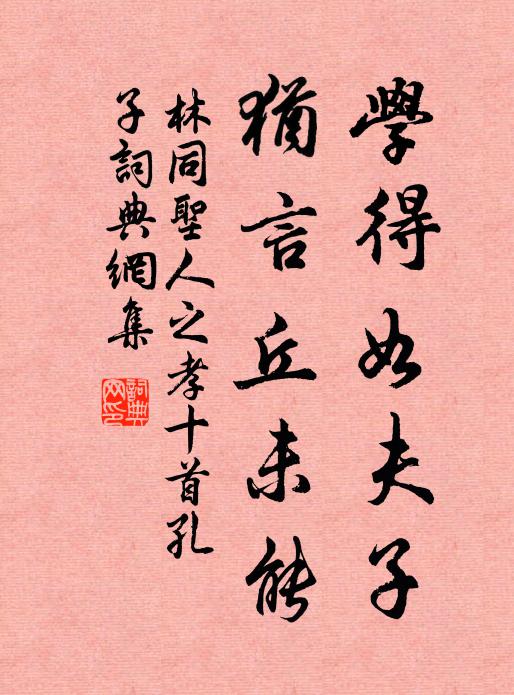 學得如夫子
猶言丘未能
林同聖人之孝十首孔
子詞典網集
詞典
网印